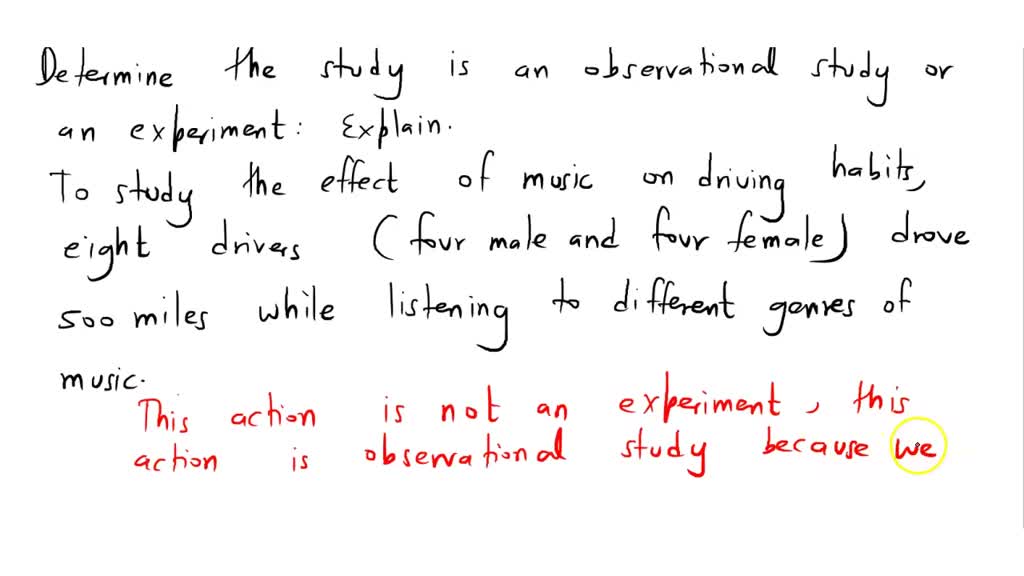 Determine the study is an observational study or
an experiment: Explain.
To study the effect of music on driving habits,
eight drivers (four male and four female) drove
500 miles while listening to different genres of
music.
This action is not an experiment, this
action is observational study because we